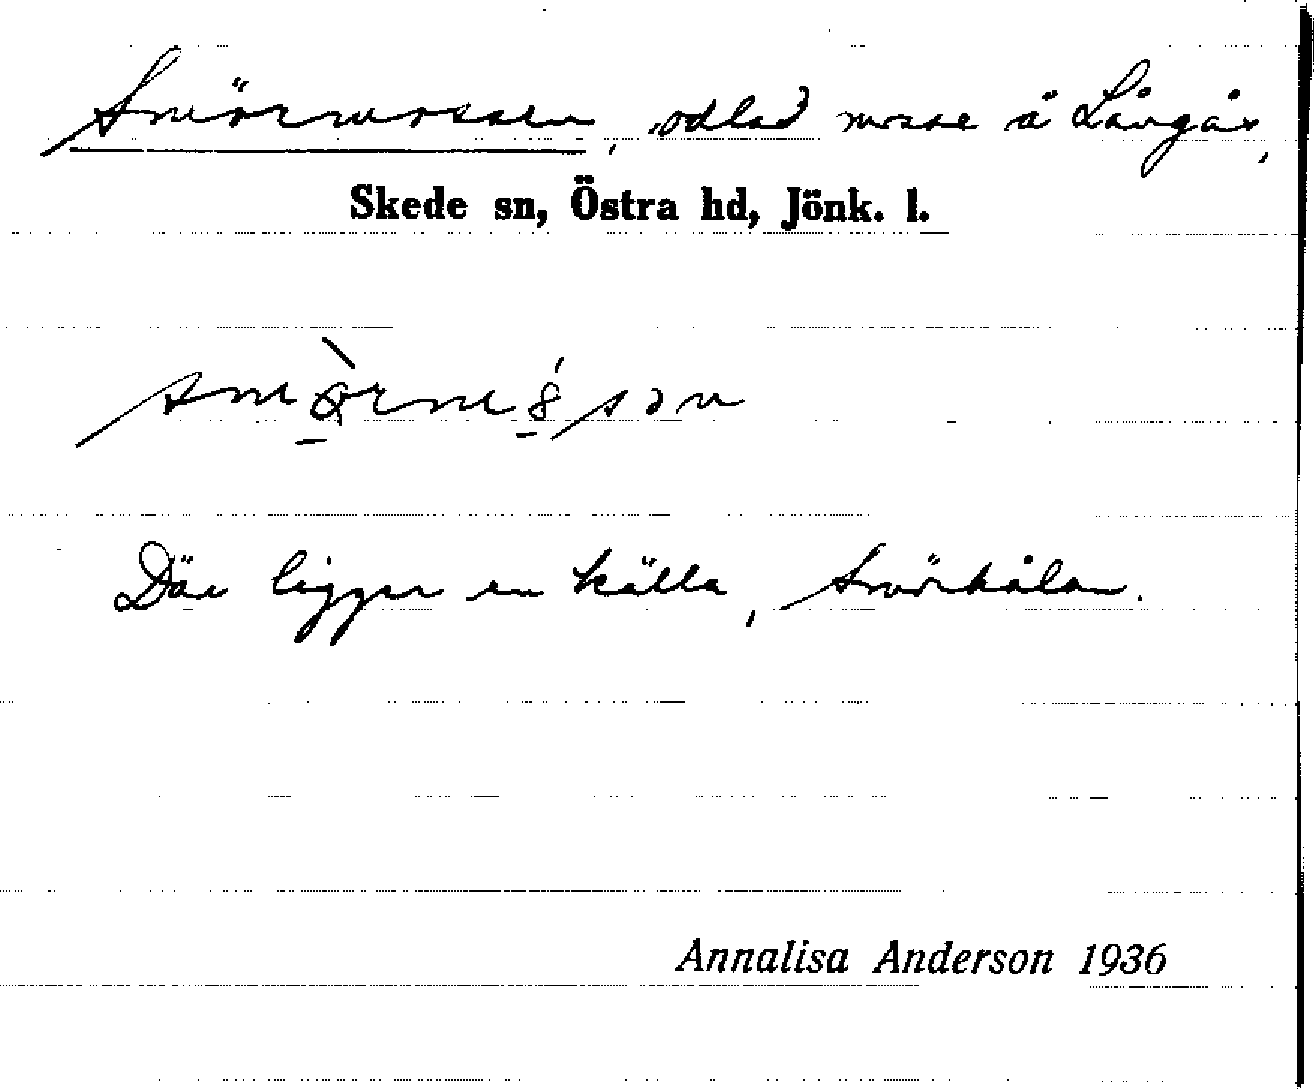 Smörmossen, odlad mosse å Långås,
Skede sn, Östra hd, Jönk. l.
Där ligger en källa, Smörhålan.
Annalisa Anderson 1936